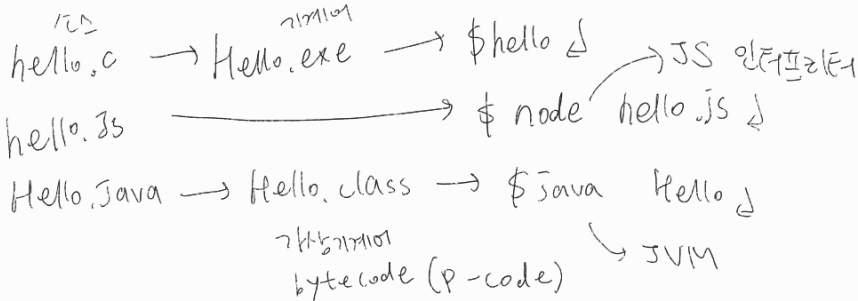 소스 기계어
hello.c → Hello.exe → $hello ↲
JS 인터프리터
hello.Js → $ node hello.js ↲
Hello.Java → Hello.class → $java Hello ↲
가상기계어
JVM
bytecode (p-code)